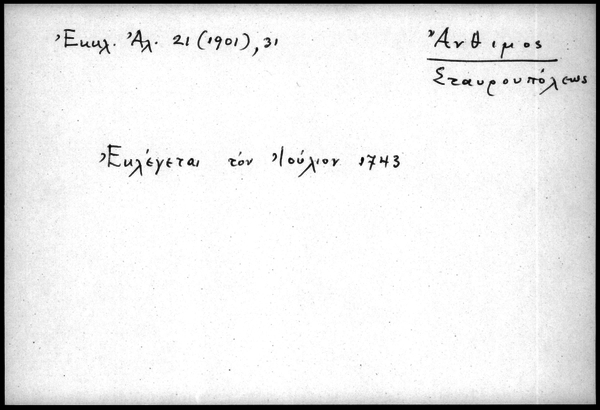 Ἐκκλ. Ἀλ. 21 (1901), 31
Ἄνθιμος
Σταυρουπόλεως
Ἐκλέγεται τὸν Ἰούλιον 1743